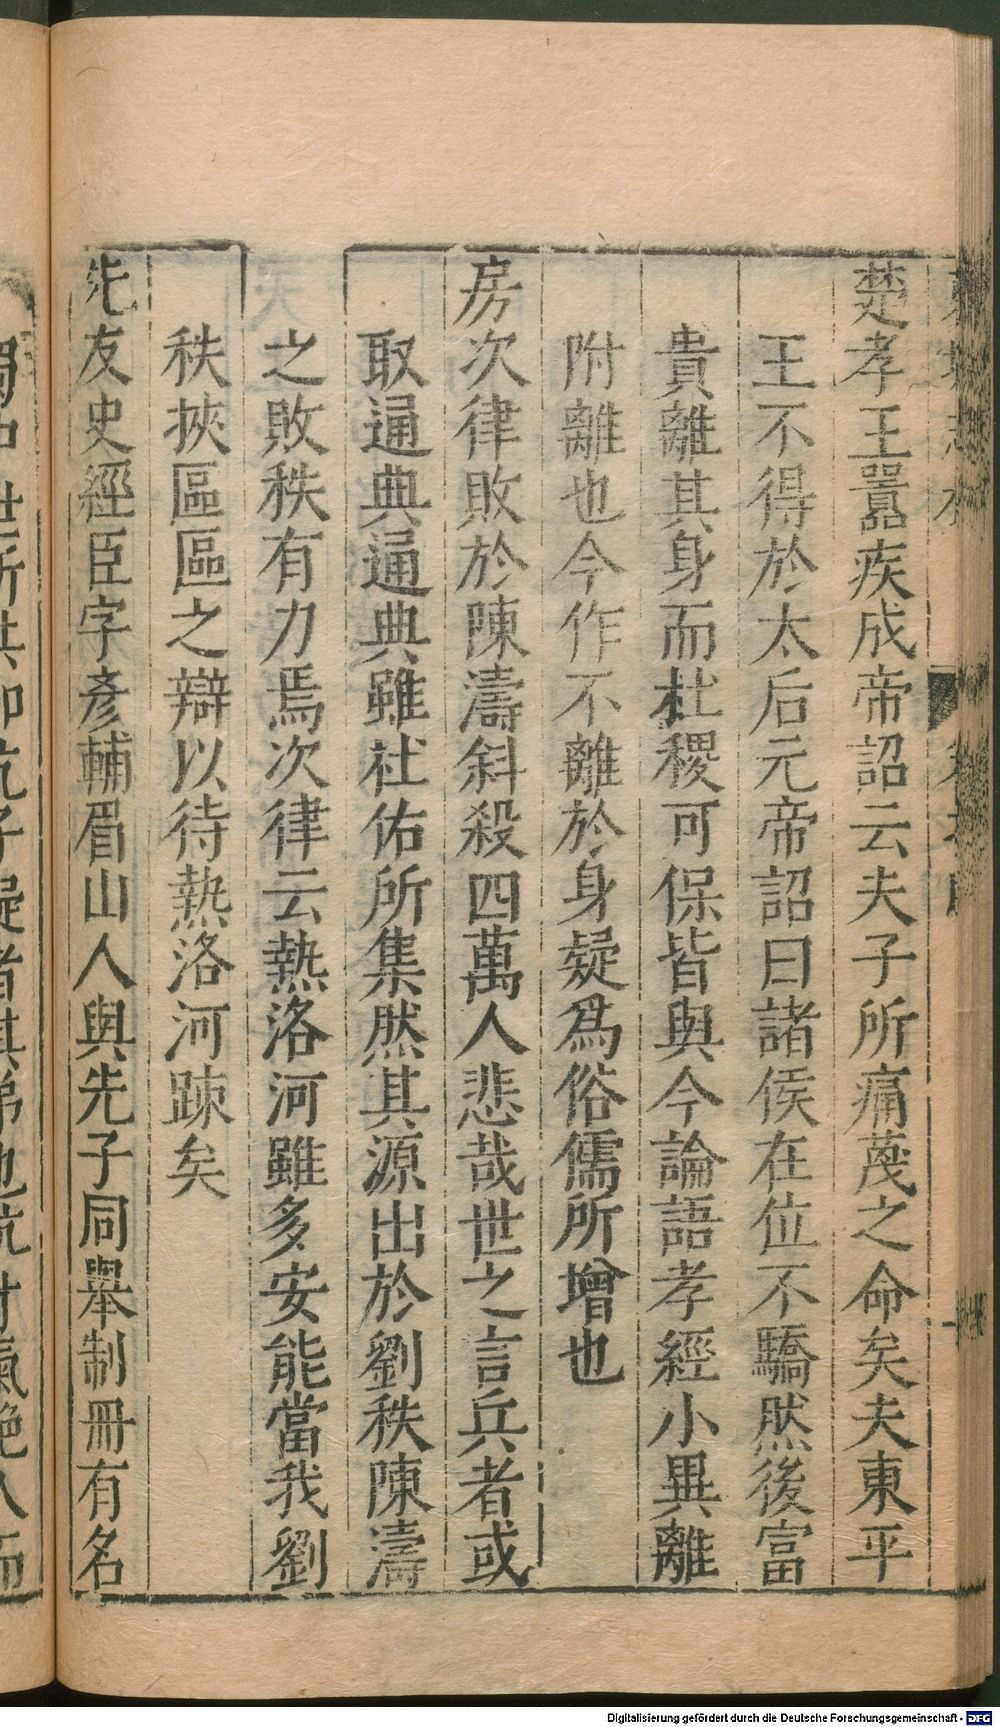 楚孝王囂疾成帝詔云夫子所痛蔑之命矣夫東平
王不得於太后元帝詔曰諸侯在位不驕然後富
貴離其身而社稷可保皆與今論語孝經小異離
附離也今作不離於身疑爲俗儒所增也
房次律敗於陳濤斜殺四萬人悲哉世之言兵者或
取通典通典雖杜佑所集然其源出於劉秩陳濤
之敗秩有力焉次律云熱洛河雖多安能當我劉
秩挾區區之辯以待熱洛河踈矣
先友史經臣字彥輔眉山人與先子同舉制冊有名
Digitalisierung gefördert durch die Deutsche Forschungsgemeinschaft - DFG